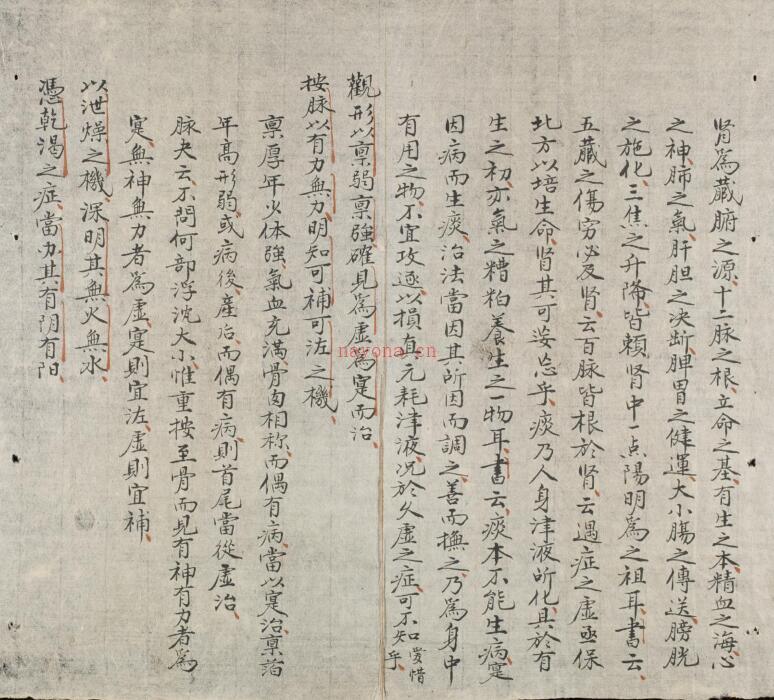 肾為藏腑之源、十二脉之根、立命之基、有生之本、精血之海、心
之神、肺之氣、肝胆之决断、脾胃之健運、大小腸之傳送、膀胱
之施化、三焦之升降、皆頼肾中一点陽明為之祖耳、書云、
五藏之傷、穷必及肾、云百脉皆根於肾、云遇症之虚、亟保
北方、以培生命、肾其可妄忽乎、痰乃人身津液所化、具於有
生之初、亦氣之糟粕、養生之一物耳、書云、痰本不能生病、寔
因病而生痰、治法當因其所因而調之、善而撫之、乃為身中
有用之物、不宜攻逐、以損真元、耗津液、况於久虚之症、可不知愛惜乎
觀形以禀弱禀強、確見為虚為寔而治、
按脉以有力無力、明知可補可泻之機、
禀厚年少体強、氣血充满、骨肉相称、而偶有病、當以寔治、禀薄
年髙形弱、或病後、產后、而偶有病、則首尾當從虚治、
脉夬云、不問何部浮沈大小、惟重按至骨而見有神有力者為
寔、無神無力者為虚、寔則宜泻、虚則宜補、
以泄燥之機、深明其無火無水、
憑乾渴之症、當办其有阴有阳、
nayona.cn